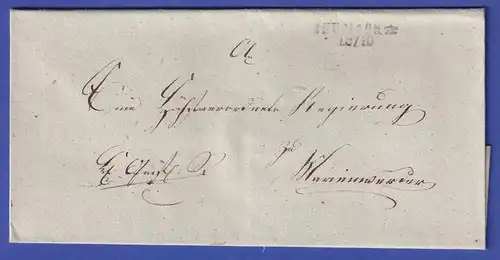 NEUMARK
13/10
A
Eine Hochverordnete Regierung
zu
Marienwerder